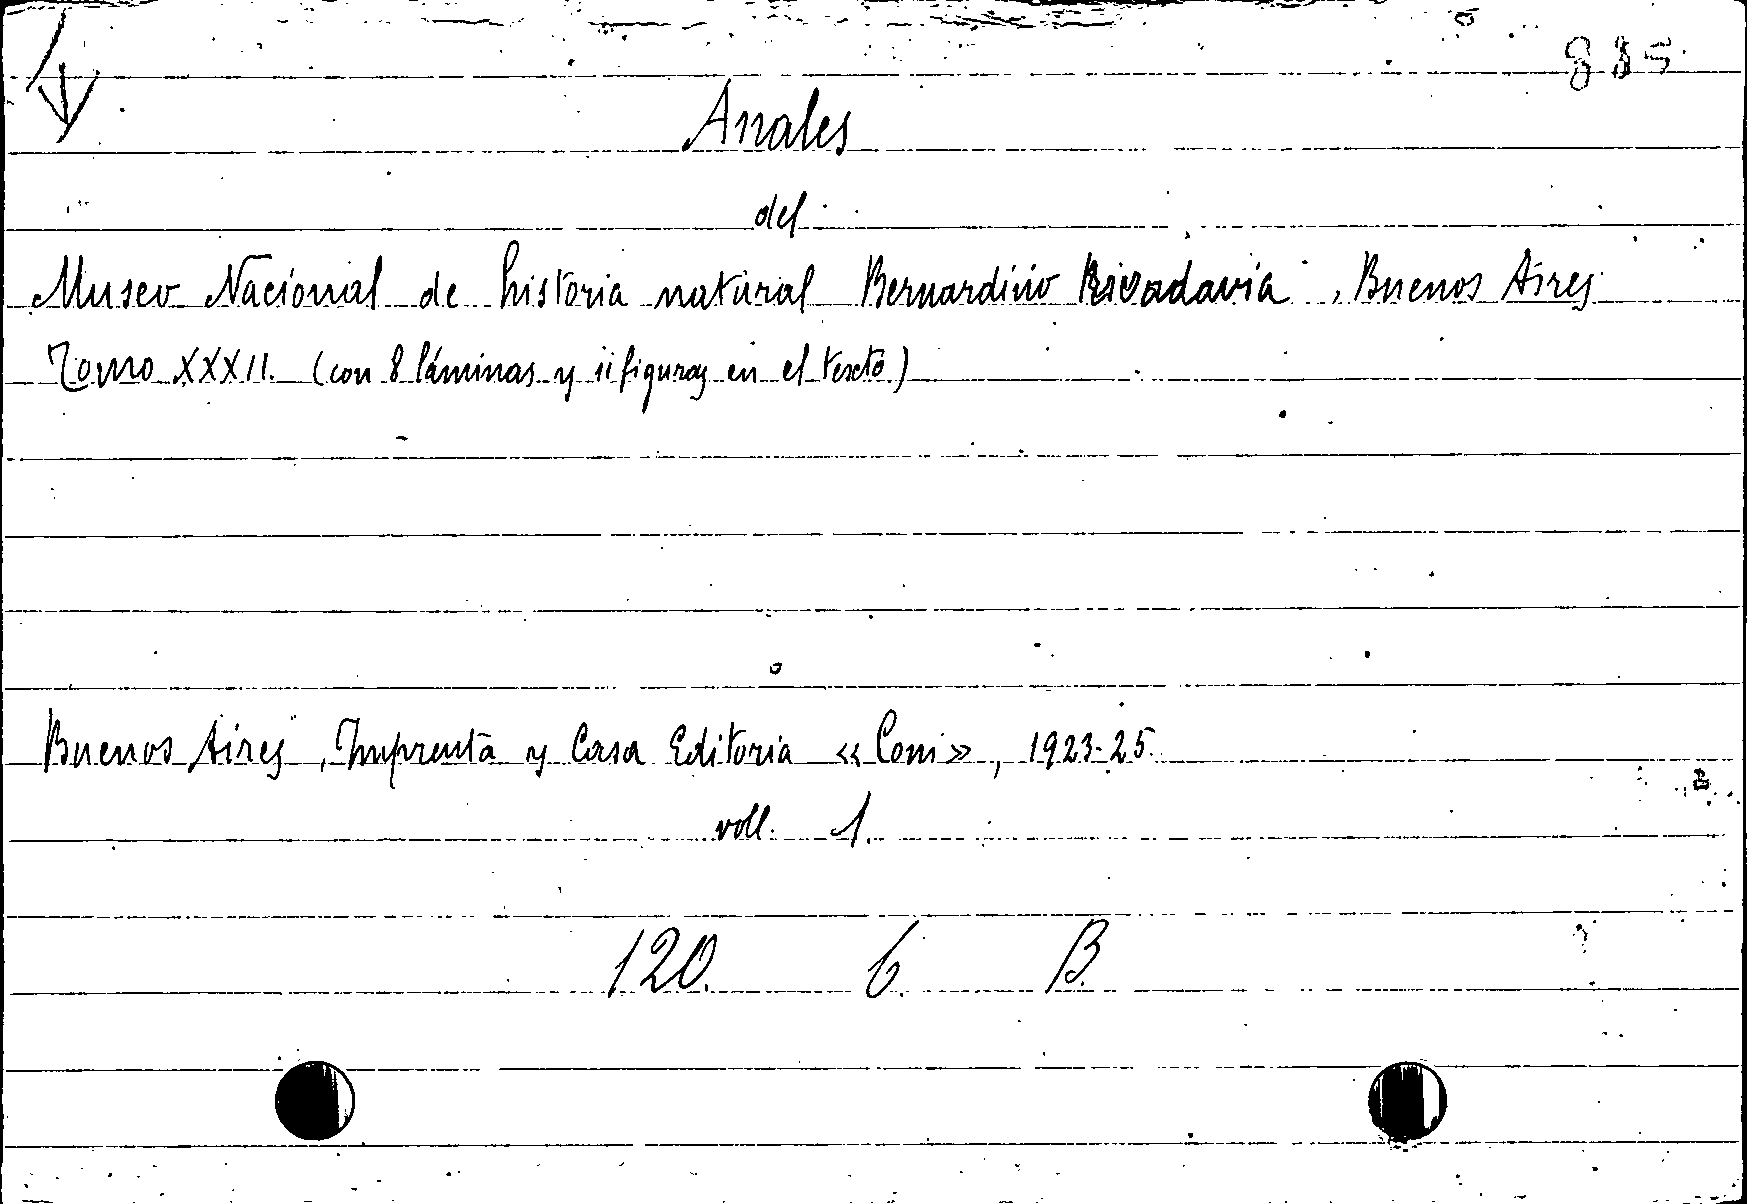 835
Anales
del
Museo Nacional de historia natural Bernardino Rivadavia, Buenos Aires
Tomo XXXII. (con 8 láminas y 11 figuras en el texto)
Buenos Aires, Imprenta y Casa Editoria «Coni», 1923-25.
voll. 1.
120. 6. B.